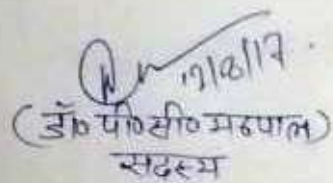 17/8/17.
(डॉ० पी०सी० मढपाल)
सदस्य